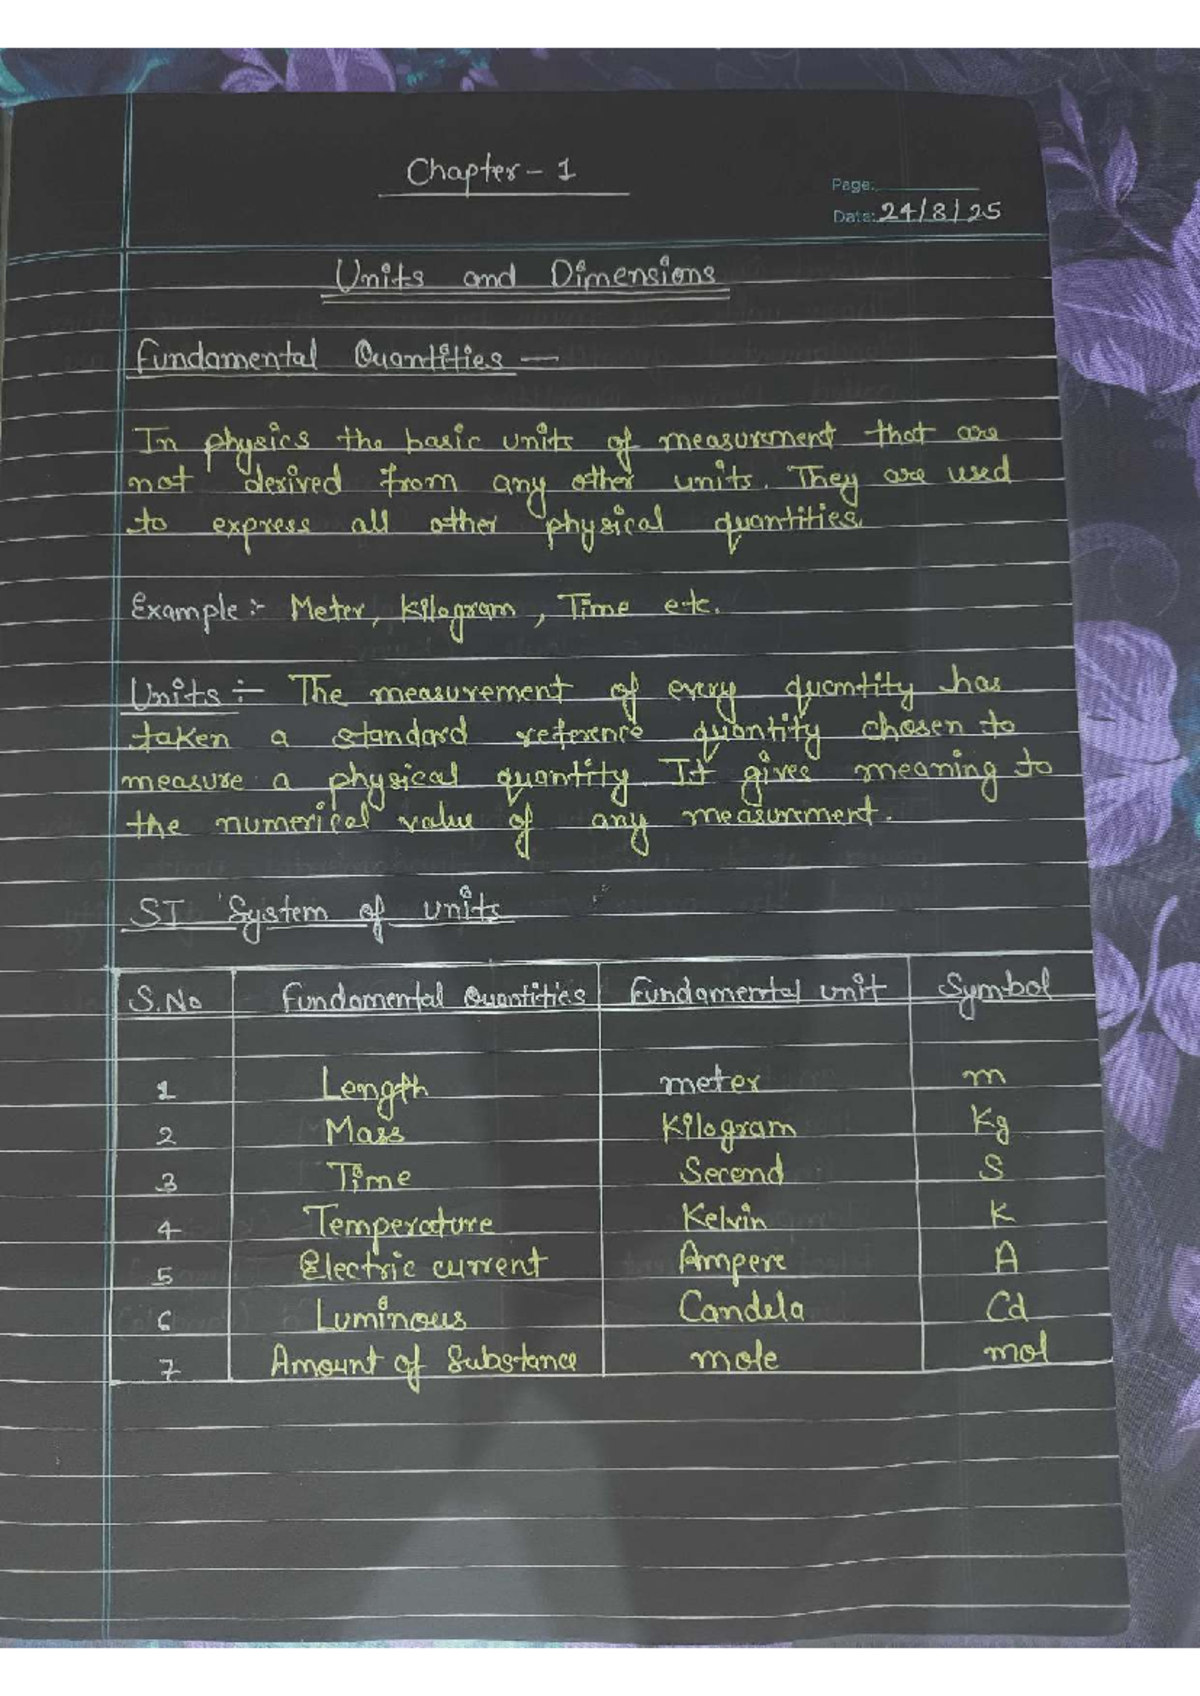 Chapter - 1
Page:
Date: 24/8/25
Units and Dimensions
Fundamental Quantities —
In physics the basic units of measurement that are
not derived from any other units. They are used
to express all other physical quantities.
Example :- Meter, Kilogram, Time etc.
Units :- The measurement of every quantity has
taken a standard reference quantity chosen to
measure a physical quantity. It gives meaning to
the numerical value of any measurement.
SI System of units
S.No Fundamental Quantities Fundamental unit Symbol
1 Length meter m
2 Mass Kilogram Kg
3 Time Second S
4 Temperature Kelvin K
5 Electric current Ampere A
6 Luminous Candela Cd
7 Amount of Substance mole mol